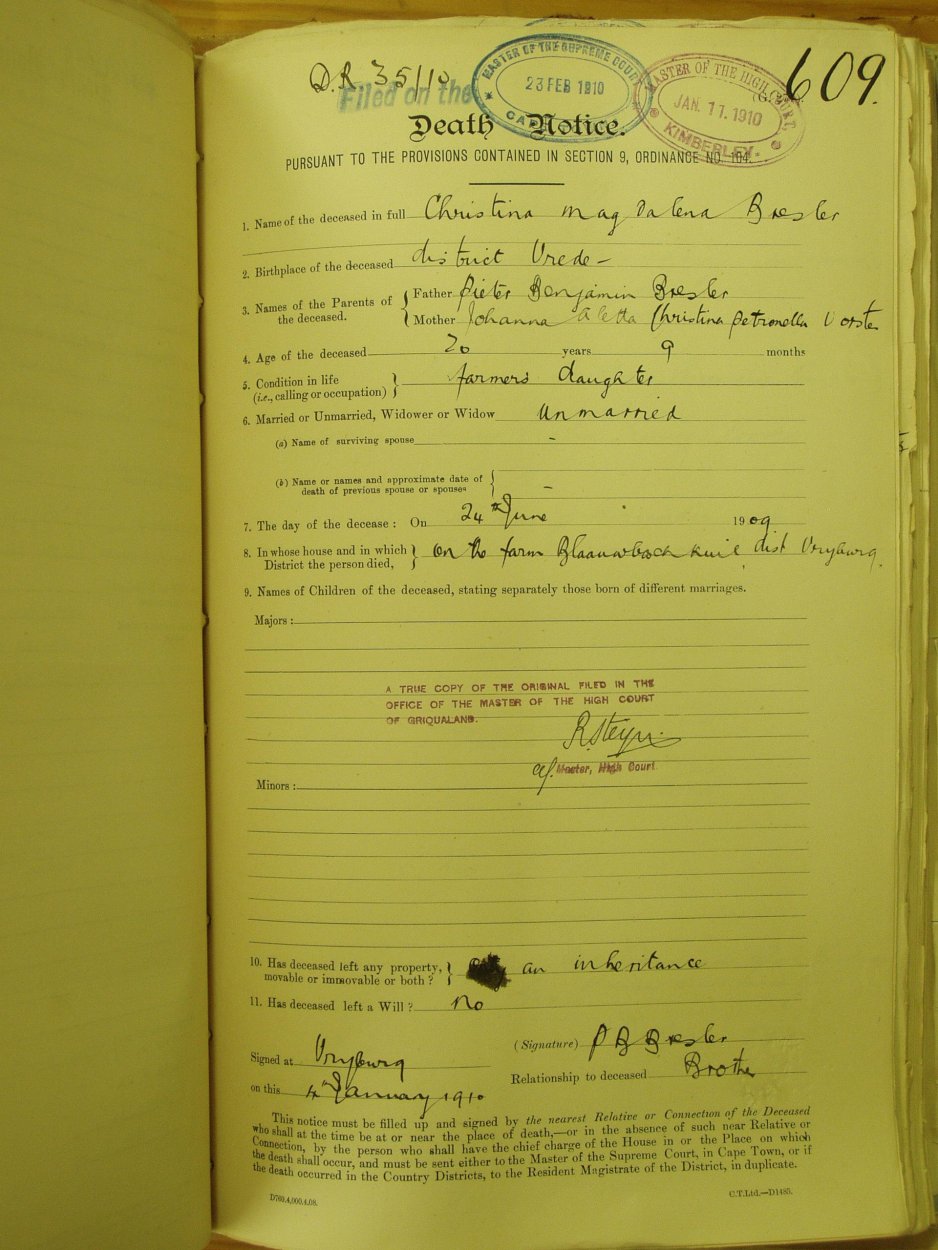 D.R. 35/10
Filed on the
MASTER OF THE SUPREME COURT
23 FEB 1910
MASTER OF THE HIGH COURT,
JAN. 11. 1910
KIMBERLEY.
609.
Death Notice.
PURSUANT TO THE PROVISIONS CONTAINED IN SECTION 9, ORDINANCE NO. 104.
1. Name of the deceased in full Christina Magdalena Bresler
2. Birthplace of the deceased district Vrede –
3. Names of the Parents of the deceased. { Father Pieter Benjamin Bresler
Mother Johanna Aletta Christina Petronella Vorster
4. Age of the deceased 20 years 9 months
5. Condition in life
(i.e., calling or occupation) } farmers daughter
6. Married or Unmarried, Widower or Widow Unmarried
(a) Name of surviving spouse -
(b) Name or names and approximate date of
death of previous spouse or spouses { –
7. The day of the decease: On 24th June 1909
8. In whose house and in which
District the person died, } On the farm dist Vryburg.
9. Names of Children of the deceased, stating separately those born of different marriages.
Majors:
A TRUE COPY OF THE ORIGINAL FILED IN THE
OFFICE OF THE MASTER OF THE HIGH COURT
OF GRIQUALAND.
R. Steyn
Master, High Court
Minors:
10. Has deceased left any property,
movable or immovable or both? } an inheritance
11. Has deceased left a Will? No
Signed at Vryburg (Signature) P B Bresler
on this 4th January 1910 Relationship to deceased Brother
This notice must be filled up and signed by the nearest Relative or Connection of the Deceased
who shall at the time be at or near the place of death,—or in the absence of such near Relative or
Connection, by the person who shall have the chief charge of the House in or the Place on which
the death shall occur, and must be sent either to the Master of the Supreme Court, in Cape Town, or if
the death occurred in the Country Districts, to the Resident Magistrate of the District, in duplicate.
D760.4,000.4.08. C.T.Ltd.—D1485.